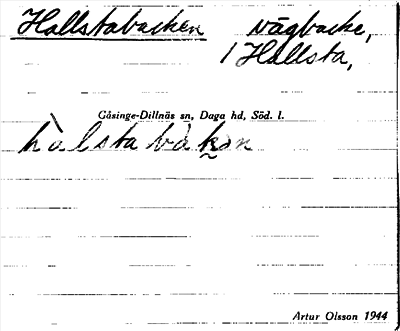 Hallstabacken vägbacke,
i Hallsta,
Gåsinge-Dillnäs sn, Daga hd, Söd. l.
hàlstabàkən
Artur Olsson 1944